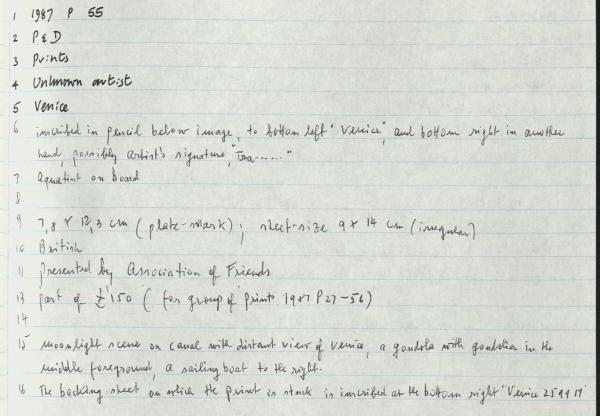 1 1987 P 55
2 P & D
3 Prints
4 Unknown artist
5 Venice
6 inscribed in pencil below image, to bottom left "Venice", and bottom right in another
hand, possibly artist's signature, "Tra......"
7 Aquatint on board
8
9 7,8 x 12,3 cm (plate-mark); sheet-size 9 x 14 cm (irregular)
10 British
11 presented by Association of Friends
13 part of £150 (for group of prints 1987 P 27-56)
14
15 moonlight scene on canal with distant view of Venice, a gondola with gondolier in the
middle foreground, a sailing boat to the right.
16 The backing sheet on which the print is stuck is inscribed at the bottom right "Venice